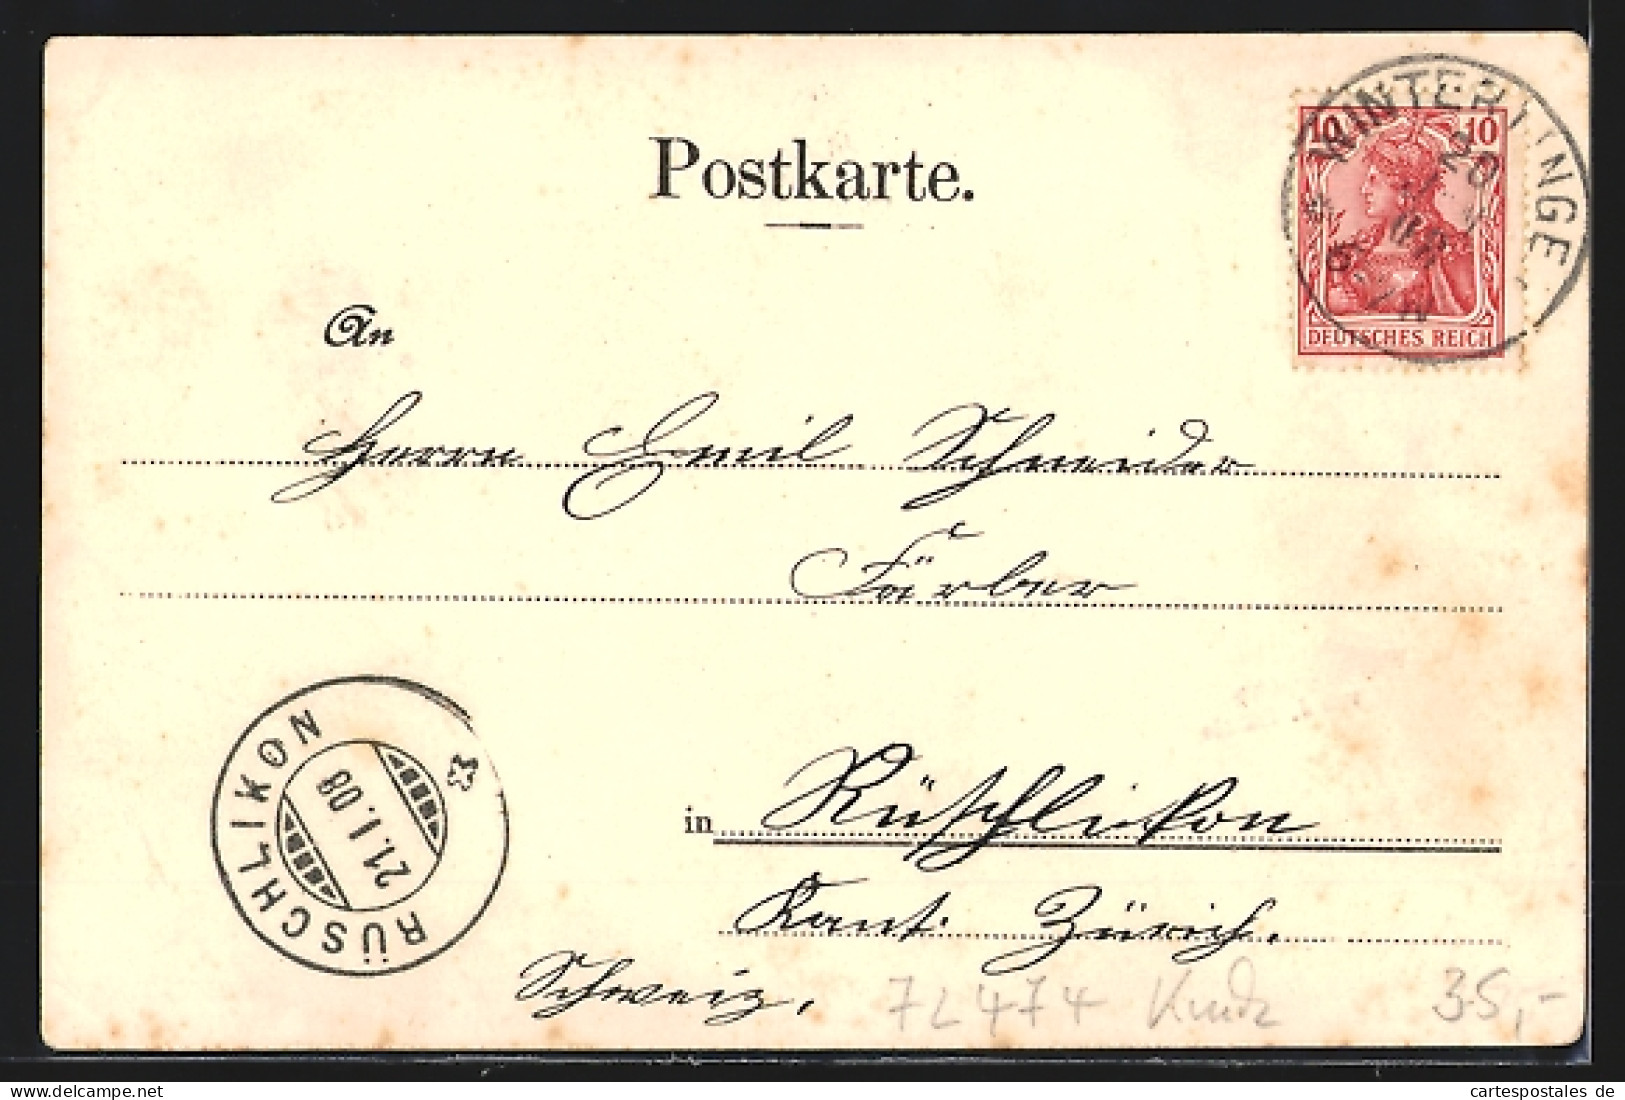 Postkarte.
10 10
DEUTSCHES REICH
WINTERLINGE
20
An
Herrn Emil Schneider
Färber
in Rüschlikon
Kant. Zürich.
Schweiz.
RÜSCHLIKON
21.I.08
7L474 35,-
Postcards
cartespostales de